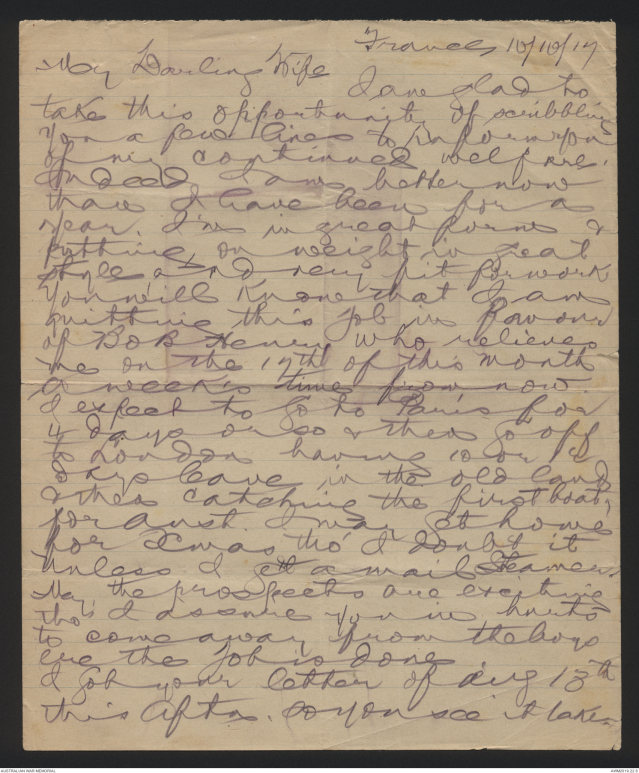 France 10/10/17
My Darling Wife
I am glad to
take this opportunity of scribbling
you a few lines to inform you
of my continued welfare.
Indeed I am better now
than I have been for a
year. I'm in great form &
putting on weight in great
style and very fit for work
You will know that I am
quitting this job in favour
of Bob Henry who relieves
me on the 17th of this month
a week's time from now.
I expect to go to Paris for
4 days or so & then go off
to London having 10 or
days leave in the old land
& then catching the first boat
for Aust. I may get home
for Xmas tho' I doubt it
unless I get a mail Steamer.
My, the prospects are exciting
tho' I assure you it hurts
to come away from the boys
ere the job is done
I got your letter of Aug 13th
this aftn. so you see it takes
AUSTRALIAN WAR MEMORIAL